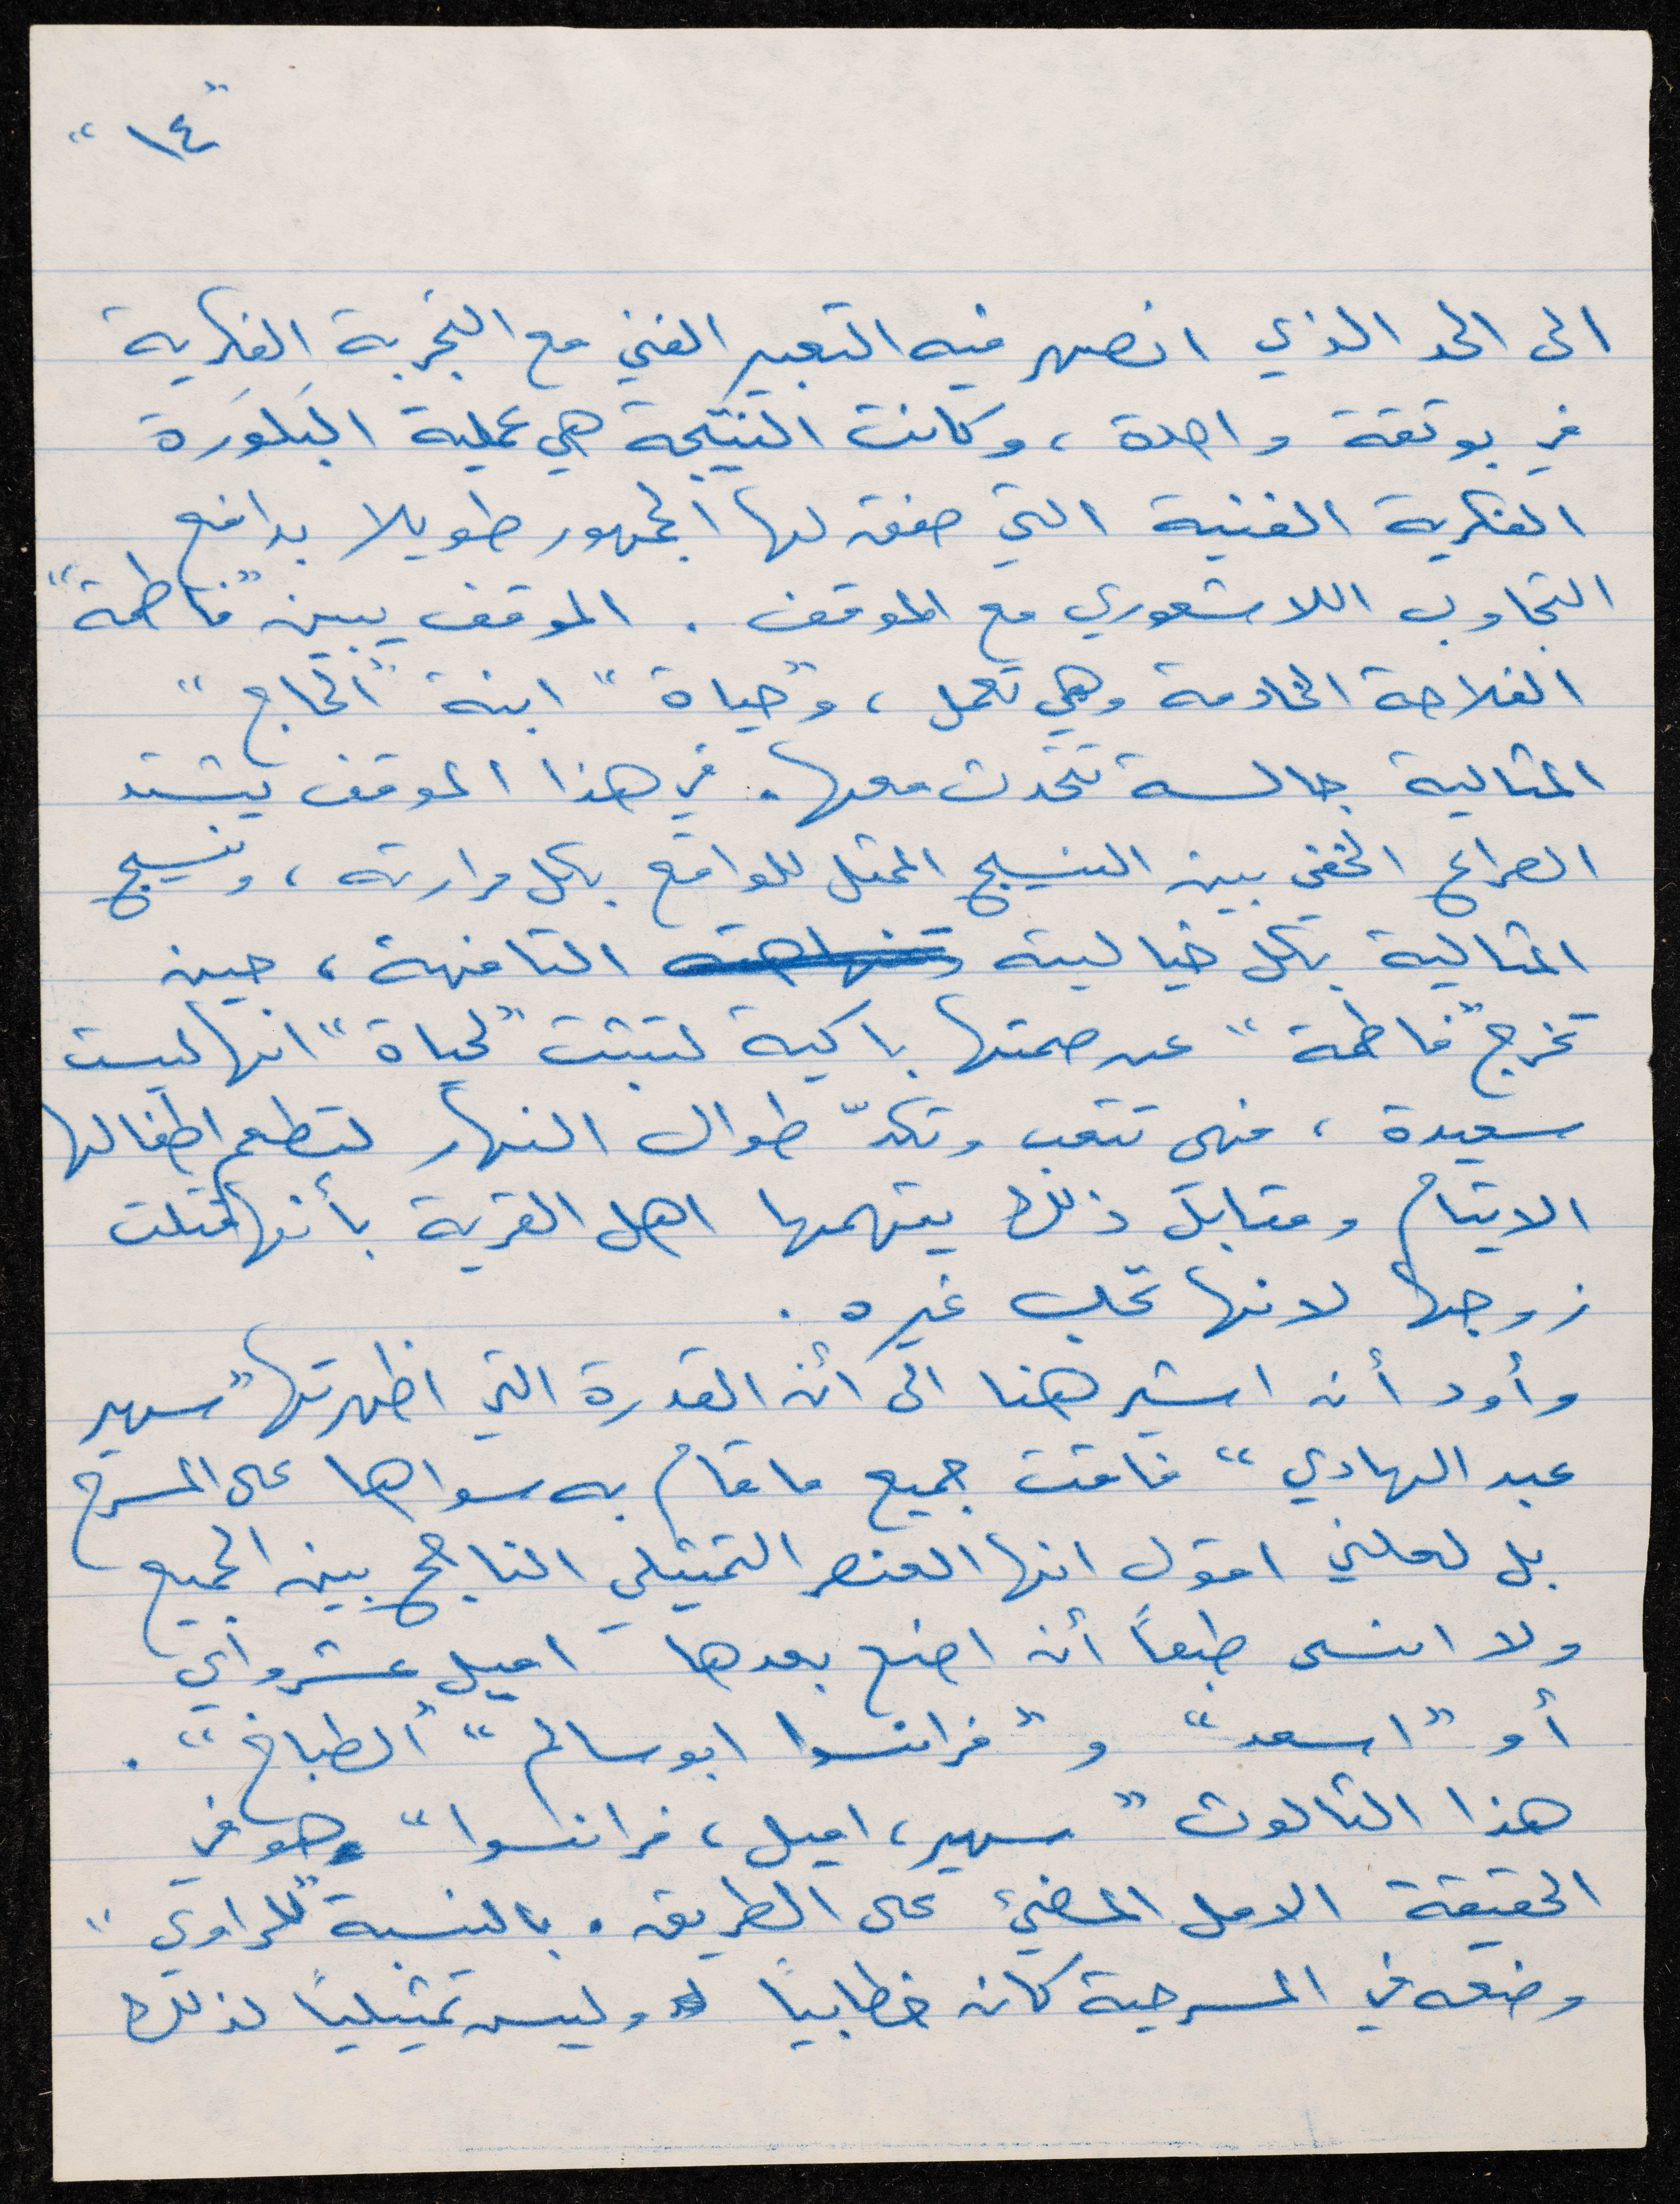 "١٤"
الى الحد الذي انصهر فيه التعبير الفني مع التجربة الفكرية
في بوتقة واحدة ، وكانت النتيجة هي عملية البَلوَرة
الفكرية الفنية التي صفق لها الجمهور طويلا بدافع
التجاوب اللاشعوري مع الموقف . الموقف يبين "فاطمة"
الفلاحة الخادمة وهي تعمل ، و"حياة" ابنة "الحاج"
المثالية جالسة تتحدث معها . في هذا الموقف يشتد
الصراع الخفي بين النسيج الممثل للواقع بكل مرارته ، ونسيج
المثالية بكل خياليته التافهة ، حين
تخرج "فاطمة" عن صمتها باكية لتثبت "لحياة" انها ليست
سعيدة ، فهي تتعب وتكدّ طوال النهار لتطعم اطفالها
الايتام ومقابل ذلك يتهمها اهل القرية بأنها قتلت
زوجها لانها تحب غيره .
وأود أن اشير هنا الى أن القدرة التي اظهرتها "سهير
عبد الهادي" فاقت جميع ما قام به سواها على المسرح
بل لعلني اقول انها العنصر التمثيلي الناجح بين الجميع
ولا انسى طبعاً أن اضع بعدها اميل عشرواي
أو "اسعد" و "فرانسوا ابو سالم" "الطباخ" .
هذا الثالوث "سهير ، اميل ، فرانسوا" هو في
الحقيقة الامل المضيئ على الطريق . بالنسبة "للراوي"
وضعه في المسرحية كان خطابياً وليس تمثيلياً لذلك